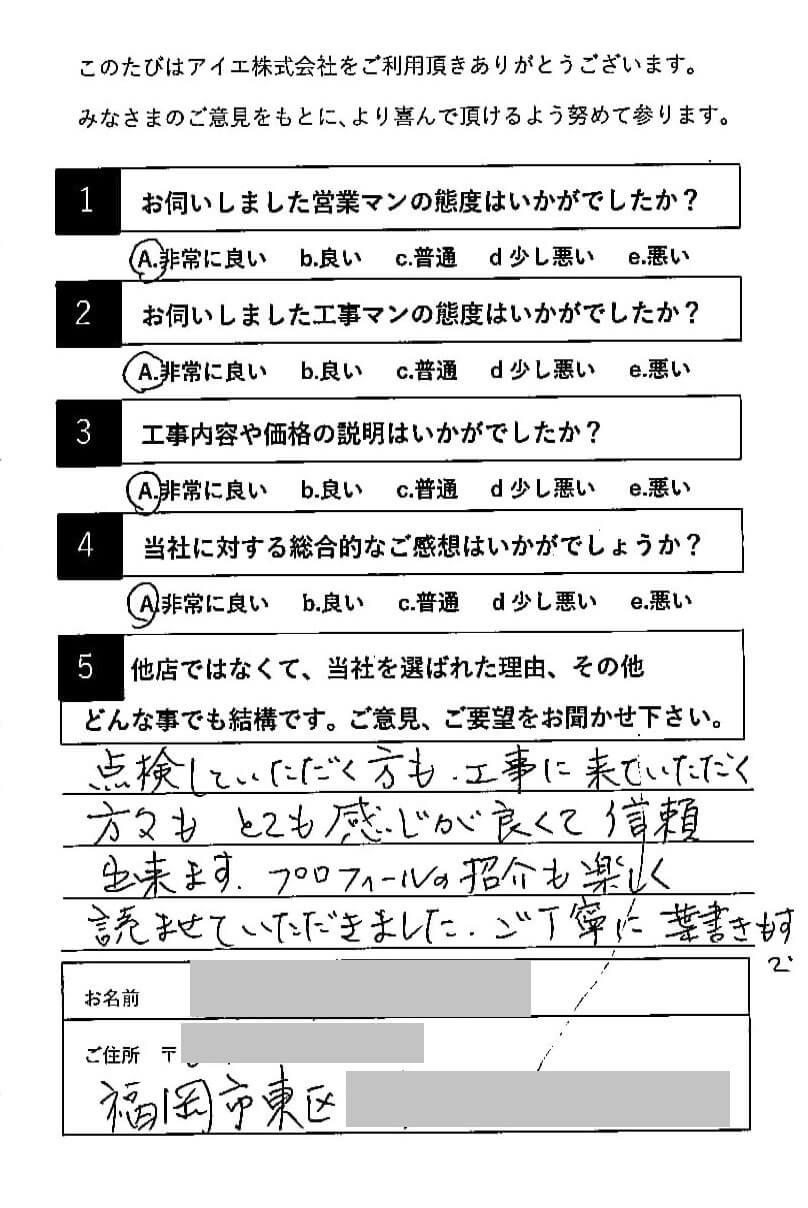 このたびはアイエ株式会社をご利用頂きありがとうございます。
みなさまのご意見をもとに、より喜んで頂けるよう努めて参ります。
1 お伺いしました営業マンの態度はいかがでしたか？
A.非常に良い b.良い c.普通 d 少し悪い e.悪い
2 お伺いしました工事マンの態度はいかがでしたか？
A.非常に良い b.良い c.普通 d 少し悪い e.悪い
3 工事内容や価格の説明はいかがでしたか？
A.非常に良い b.良い c.普通 d 少し悪い e.悪い
4 当社に対する総合的なご感想はいかがでしょうか？
A.非常に良い b.良い c.普通 d 少し悪い e.悪い
5 他店ではなくて、当社を選ばれた理由、その他
どんな事でも結構です。ご意見、ご要望をお聞かせ下さい。
点検していただく方も、工事に来ていただく
方々も とても感じが良くて信頼
出来ます. プロフィールの紹介も楽しく
読ませていただきました. ご丁寧に葉書きも
お名前
ご住所 〒
福岡市東区